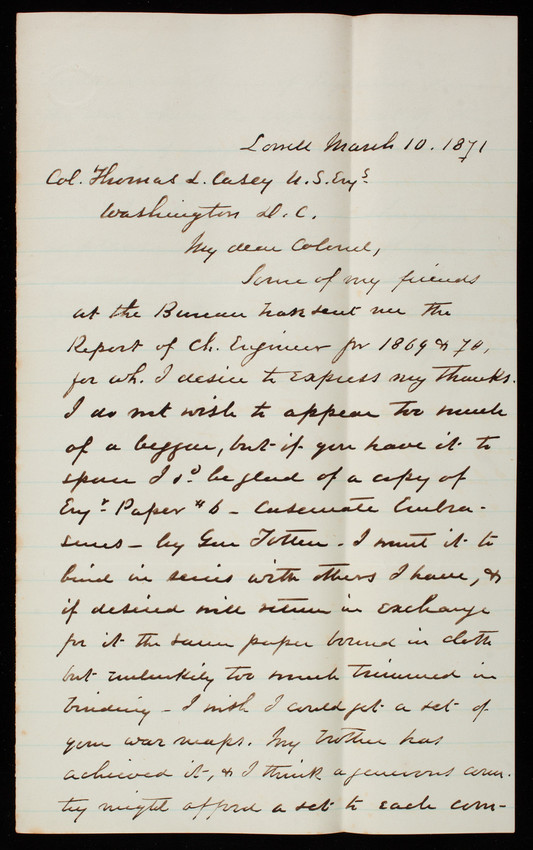 Lowell March 10. 1871
Col. Thomas L. Casey U.S. Engs
Washington D.C.
My dear Colonel,
Some of my friends
at the Bureau have sent me the
Report of Ch. Engineer for 1869 & 70,
for wh. I desire to express my thanks.
I do not wish to appear too much
of a beggar, but if you have it to
spare I sd be glad of a copy of
Engr Paper #6 - Casemate Embra-
sures - by Gen Totten - I want it to
bind in series with others I have, &
if desired will return in exchange
for it the same paper bound in cloth
but unluckily too much trimmed in
binding - I wish I could get a set of
your war maps. My brother has
achieved it, & I think a generous coun-
try might afford a set to each com-